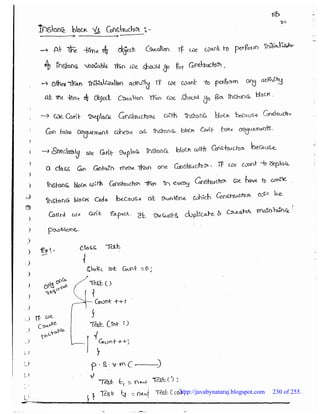 Instance block Vs Constructor :-
→ At the time of object Creation if we want to perform Initialization
of Instance variable then we should go for Constructor.
→ other than Initialization activity if we want to perform any activity
at the time of object Creation then we should go for Instance block.
→ we Can't replace Constructor with Instance block because Constructor
Can take argument whereas Instance block Can't take arguments.
→ Similarly we Can't replace Instance block with Constructor because
a class Can Contain more than one Constructor. If we want to replace
Instance block with Constructor then in every Constructor we have to write
Instance block Code because at runtime which Constructor will be
Called we Can't expect. It results duplicate & Creates maintainance
problems.
Ex1:-
class Test
{
static int Count = 0;
Test ()
{
Count ++;
}
Test (int i)
{
Count ++;
}
p.s.v.m (——)
{
Test t1 = new Test();
http://javabynataraj.blogspot.com 230 of 255.